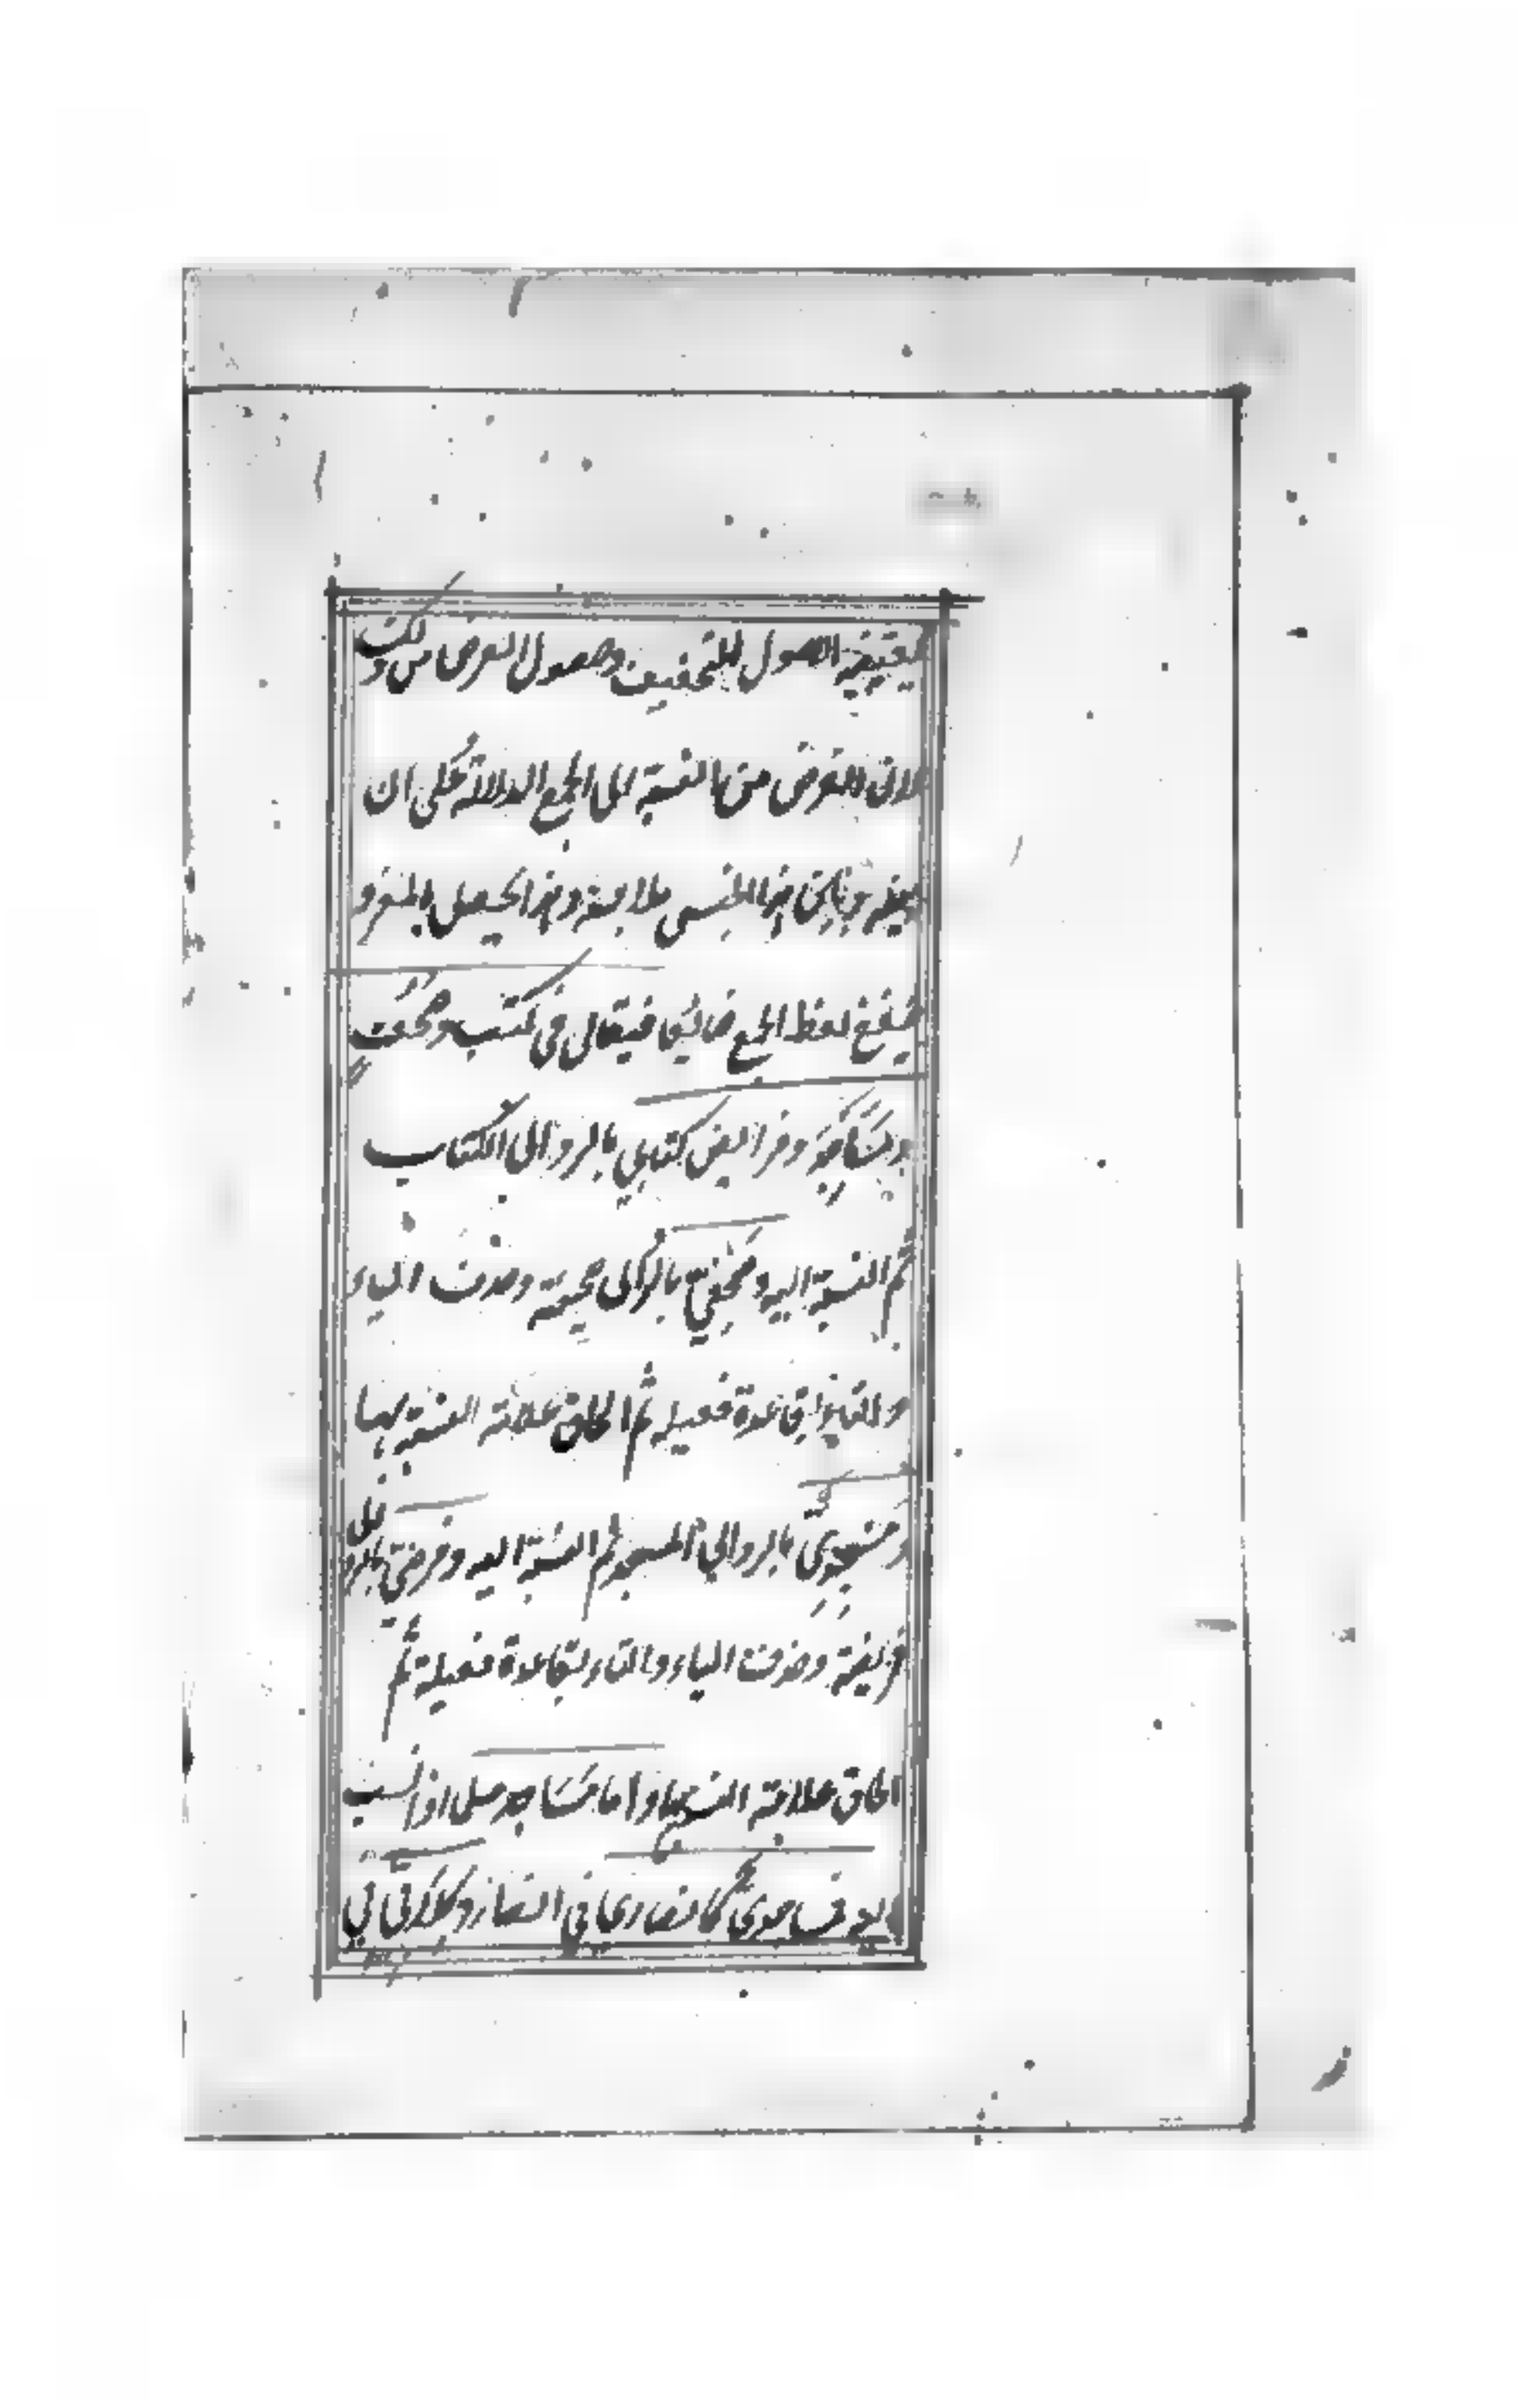 حقيقة الاصول للتخفيف وحصول الغرض من ذلك
لان الغرض من النسبة الى الجمع الدلالة على ان
بينه وبين هذا الجنس ملابسة وهذا يحصل بالمفرد
فيقع لفظ الجمع ضائعا فيقال في كتب وصحف
ومساجد وفرائض كتابي بالرد الى الكتاب
ثم النسبة اليه وصحفي بالرد الى صحيفة وحذف الياء
والتاء بقاعدة فعيلة ثم الحاق علامة النسبة بها
ومسجدي بالرد الى المسجد ثم النسبة اليه وفرضي بالرد الى
فريضة وحذف الياء والتاء بقاعدة فعيلة ثم
الحاق علامة النسبة بها واما مساجد علما اذا نسب
اليه فمساجدي كانصاري في انصار وكلابي في